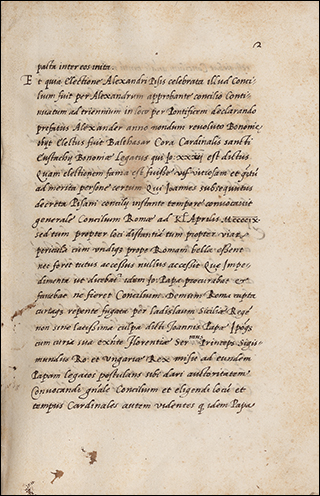 2
pacta inter eos inita.
Et quia Electione Alexandri Pisis celebrata illud Conci-
lium fuit per Alexandrum approbante concilio Conti-
nuatum ad triennium in loco per Pontificem declarando
prefatus Alexander anno nondum revoluto Bononie
obijt Electus fuit Balthasar Cora Cardinalis sancti
Eustachij Bononiae Legatus qui Jo. xxxiij est dictus
Quam electionem fama est fuisse et
ad merita persone certum Qui Joannes subsequutus
decreta Pisani concilij instante tempore convocavit
generale Concilium Romae ad Kl Aprilis
sed tum propter loci distantia tum propter viar
pericula cum undiq prope Romam bella essent
nec foret tutus accessus nullus accessit Que Impe-
dimenta ut dicebat idem Jo. Papa procurabat et
faciebat ne fieret Concilium Demum Roma capta
repente fugata per ladislaum Siciliae Rege
non sine latissima culpa dicti Joannis Papa Ipse
cum curia sua exiit Florentiae Ser.mus Princeps Sigis-
mundus Ro. et Ungariae Rex misit ad eundem
Papam legatos postulans sibi dari auctoritatem
Convocandi gnale Concilium et eligendi locu et
tempus Cardinales autem videntes q idem Papa